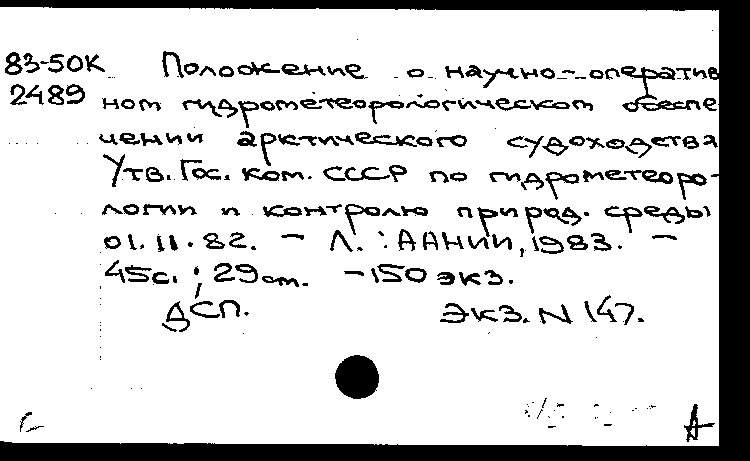 83-50К Положение о научно-оператив
2489 ном гидрометеорологическом обеспе
чении арктического судоходства
Утв. Гос. ком. СССР по гидрометеоро-
логии и контролю природ. среды
01.11.82. - Л.: ААНИИ, 1983. -
45с.; 29см. - 150 экз.
ДСП. Экз. N 147.
А